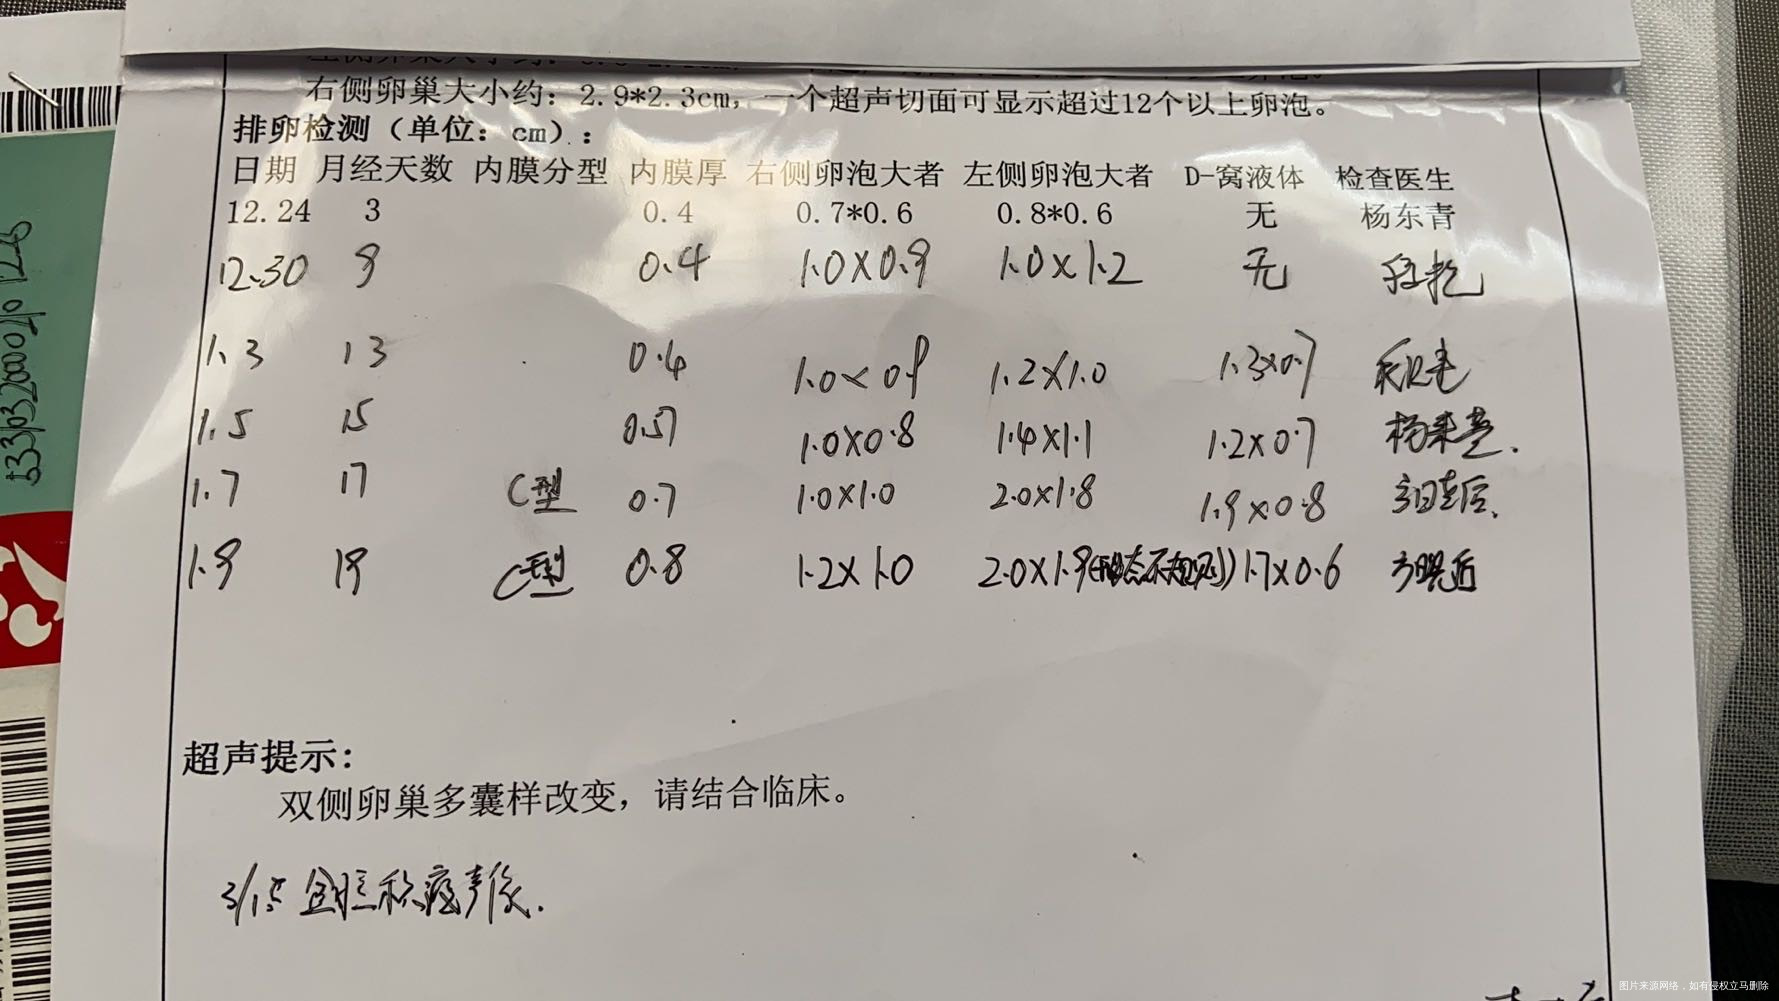 右侧卵巢大小约：2.9*2.3cm，一个超声切面可显示超过12个以上卵泡。
排卵检测（单位：cm）：
日期 月经天数 内膜分型 内膜厚 右侧卵泡大者 左侧卵泡大者 D-窝液体 检查医生
12.24 3 0.4 0.7*0.6 0.8*0.6 无 杨东青
12.30 9 0.4 1.0×0.9 1.0×1.2 无
1.3 13 0.4 1.0×0.9 1.2×1.0 1.3×0.7
1.5 15 0.57 1.0×0.8 1.4×1.1 1.2×0.7
1.7 17 C型 0.7 1.0×1.0 2.0×1.8 1.9×0.8
1.9 19 C型 0.8 1.2×1.0 2.0×1.9(形态不规则) 1.7×0.6
超声提示：
双侧卵巢多囊样改变，请结合临床。
盆腔积液声像.
图片来源网络，如有侵权立马删除